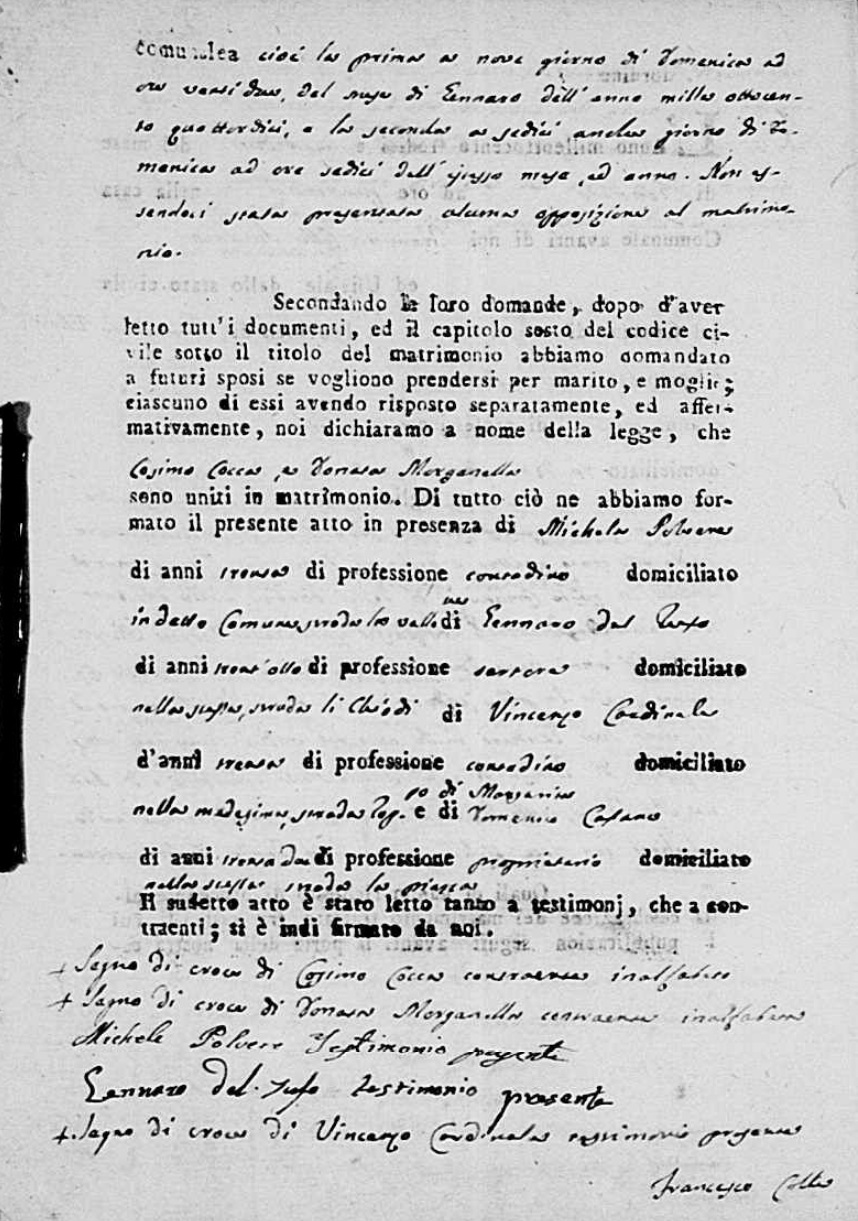 comunale a cioè la prima a nove giorno di Domenica ad
ore venti due, del mese di Gennaro dell'anno mille ottocen-
to quattordici, e la seconda a sedici anche giorno di Do-
menica ad ore sedici dell'istesso mese, ed anno. Non es-
sendoci stata presentata alcuna opposizione al matrimo-
nio.
Secondando le loro domande, dopo d'aver
letto tutt'i documenti, ed il capitolo sesto del codice ci-
vile sotto il titolo del matrimonio abbiamo domandato
a futuri sposi se vogliono prendersi per marito, e moglie;
ciascuno di essi avendo risposto separatamente, ed affer-
mativamente, noi dichiaramo a nome della legge, che
Cosimo Cocca, e Donata Morganella
sono uniti in matrimonio. Di tutto ciò ne abbiamo for-
mato il presente atto in presenza di Michele Polvere
di anni trenta di professione contadino domiciliato
in detto Comune strada la valle di Gennaro del
di anni trent'otto di professione sartore domiciliato
nella stessa, strada li Chiodi di Vincenzo Cardinale
d'anni trenta di professione contadino domiciliato
nella medesima, strada e di Domenico
di anni trenta due di professione proprietario domiciliato
nella stessa strada la piazza
Il sudetto atto è stato letto tanto a testimonj, che a con-
traenti; si è indi firmato da noi.
+ Segno di croce di Cosimo Cocca contraente inalfabeto
+ Segno di croce di Donata Morganella contraente inalfabeta
Michele Polvere Testimonio presente
Gennaro del testimonio presente
+ Segno di croce di Vincenzo Cardinale testimonio presente
Francesco